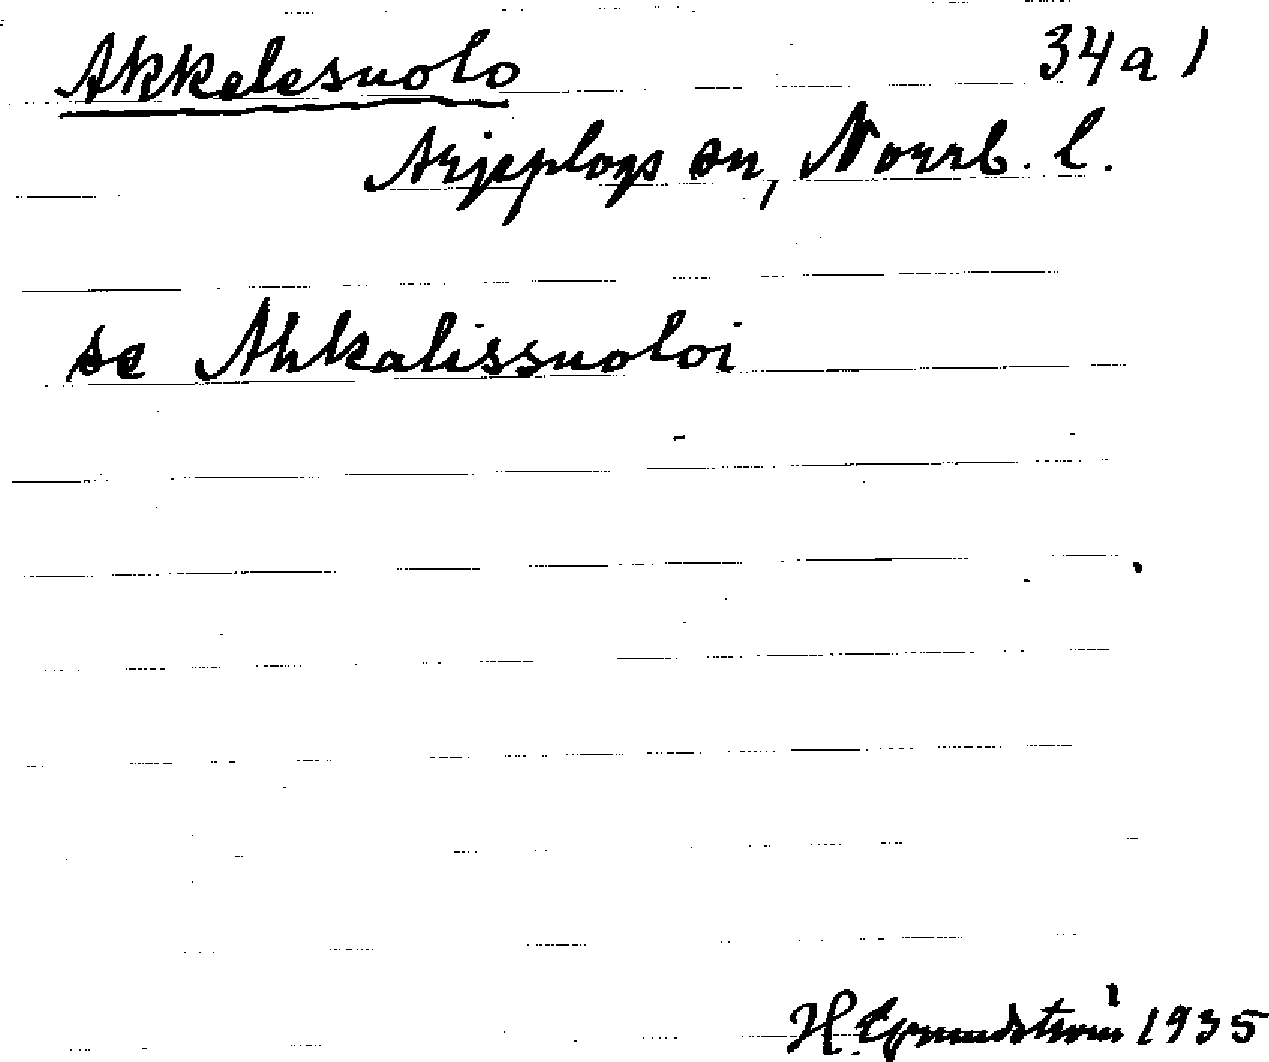 Akkelesuolo 34a1
Arjeplogs sn, Norrb. l.
se Ahkalissuoloi
H. Grundström 1935